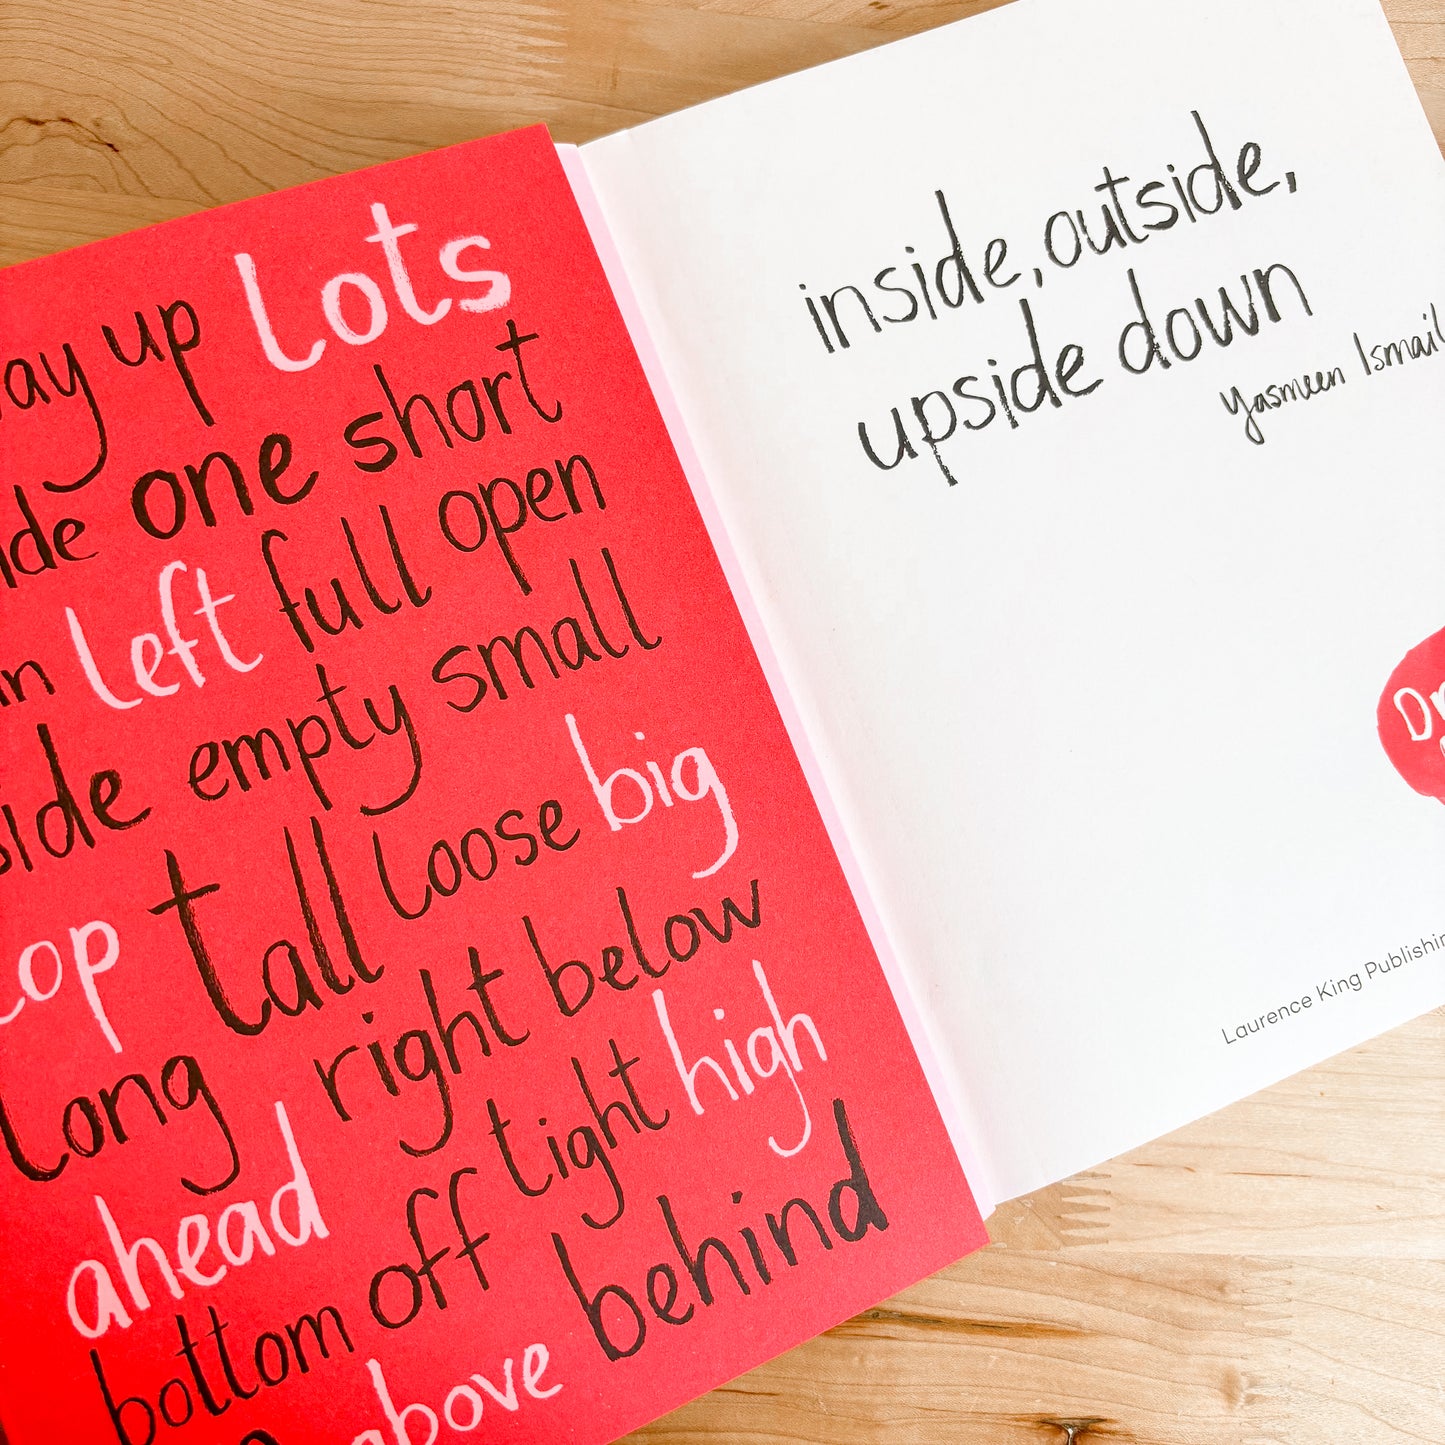 up lots
one short
left full open
empty small
tall loose big
long right below
ahead tight high
bottom off behind
above
inside, outside,
upside down
Yasmeen Ismail
Laurence King Publishin